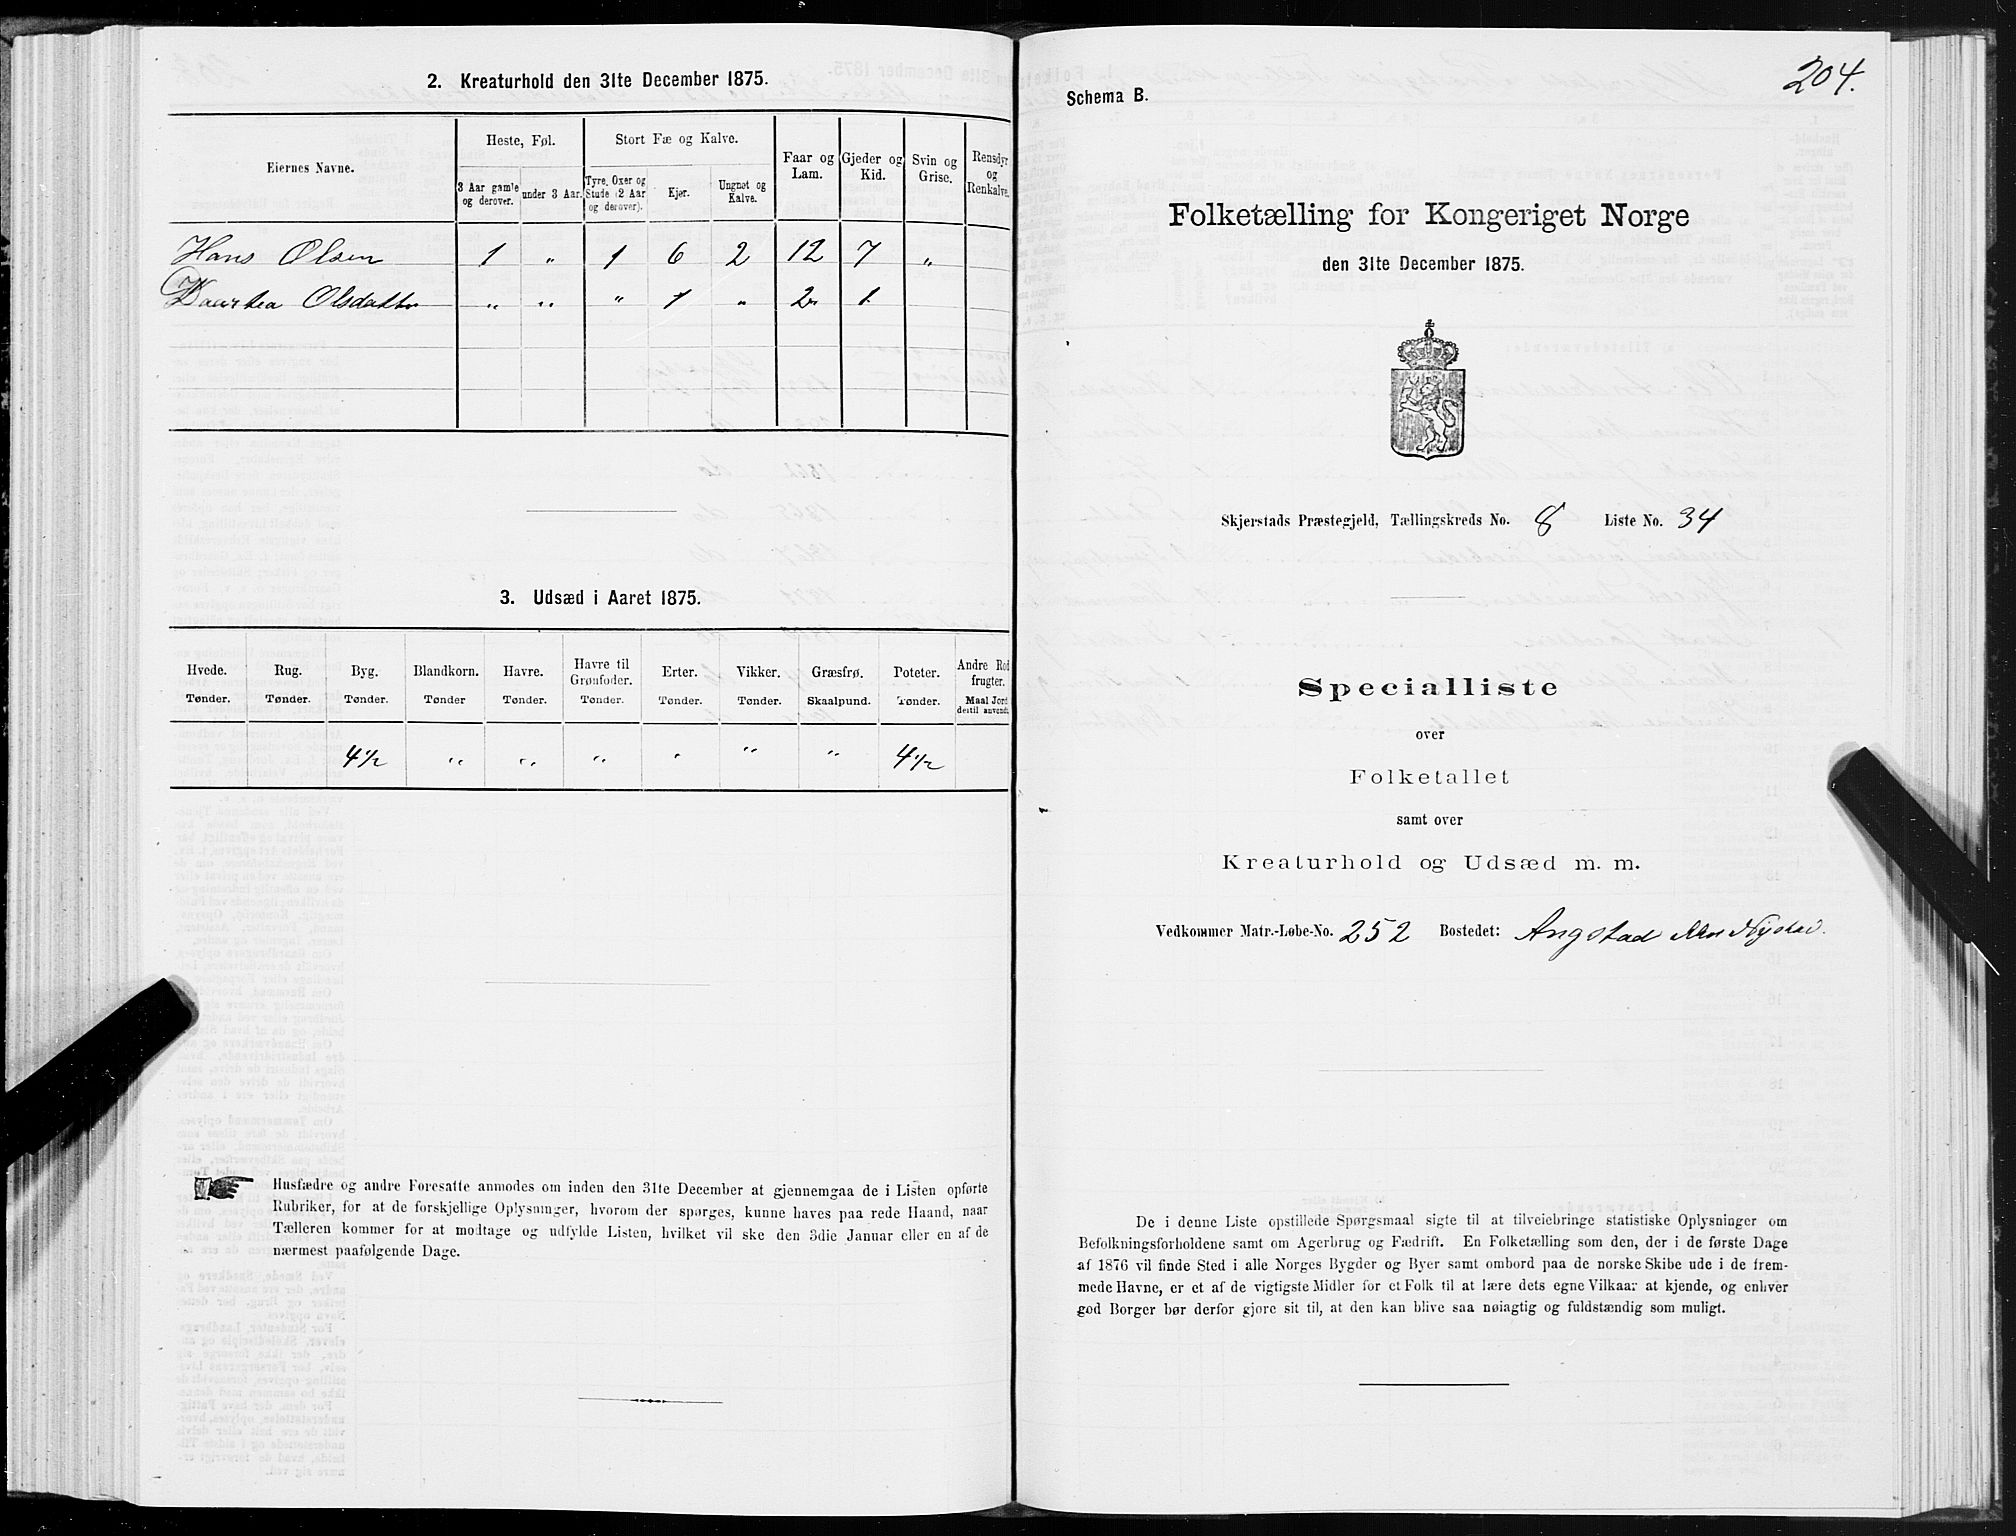 2. Kreaturhold den 31te December 1875.
Eiernes Navne.
Heste, Føl.
Stort Fæ og Kalve.
Faar og Lam.
Gjeder og Kid.
Svin og Grise.
Rensdyr og Renkalve.
3 Aar gamle og derover.
under 3 Aar.
Tyre, Oxer og Stude (2 Aar og derover).
Kjør.
Ungnøt og Kalve.
Hans Olsen 1 " 1 6 2 12 7 "
Olsdatter " " " 1 " 2 1
3. Udsæd i Aaret 1875.
Hvede. Rug. Byg. Blandkorn. Havre. Havre til Grønfoder. Erter. Vikker. Græsfrø. Poteter. Andre Rodfrugter.
Tønder. Tønder. Tønder. Tønder Tønder. Tønder. Tønder. Tønder. Skaalpund. Tønder. Maal Jord dertil anvendt.
4 1/2 " " " " " " 4 1/2
Husfædre og andre Foresatte anmodes om inden den 31te December at gjennemgaa de i Listen opførte
Rubriker, for at de forskjellige Oplysninger, hvorom der spørges, kunne haves paa rede Haand, naar
Tælleren kommer for at modtage og udfylde Listen, hvilket vil ske den 3die Januar eller en af de
nærmest paafølgende Dage.
204.
Schema B.
Folketælling for Kongeriget Norge
den 31te December 1875.
Skjerstads Præstegjeld, Tællingskreds No. 8 Liste No. 34
Specialliste
over
Folketallet
samt over
Kreaturhold og Udsæd m. m.
Vedkommer Matr.-Løbe-No. 252 Bostedet: Angstad Nystad.
De i denne Liste opstillede Spørgsmaal sigte til at tilveiebringe statistiske Oplysninger om
Befolkningsforholdene samt om Agerbrug og Fædrift. En Folketælling som den, der i de første Dage
af 1876 vil finde Sted i alle Norges Bygder og Byer samt ombord paa de norske Skibe ude i de frem-
mede Havne, er et af de vigtigste Midler for et Folk til at lære dets egne Vilkaar at kjende, og enhver
god Borger bør derfor gjøre sit til, at den kan blive saa nøiagtig og fuldstændig som muligt.